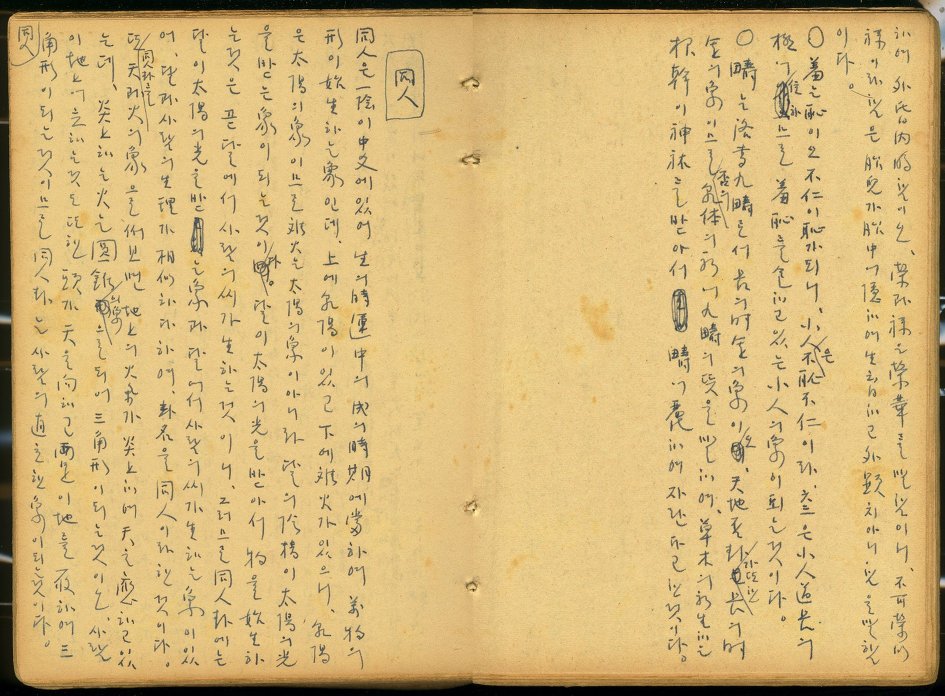 하여 外昏內明함이오, 榮과 祿은 榮華를 말함이니, 不可榮以
祿이라 함은 胎兒가 胎中에 隱하여 生育하고 外顯치 아니함을 말함
이다.
○ 羞는 恥이오 不仁이 恥가 되니, 小人은 不恥不仁이라, 六三은 小人道長의
極에 住하므로 羞恥를 包하고 있는 小人의 象이 되는 것이다.
○ 疇는 洛書九疇로서 長의 時 金의 象이오, 天地否卦 라 또한 長의 時
金의 象이므로 否의 乾体의 形에 九疇의 뜻을 말하여, 草木의 形生하는
根幹이 神祿을 받아서 疇에 麗하여 자란다고 한 것이다.
同人
同人은 一陰이 中爻에 있어 生의 時運中의 成의 時期에 當하여 萬物의
形이 始生하는 象인데, 上에 乾陽이 있고 下에 離火가 있으니, 乾陽
은 太陽의 象이므로 離火는 太陽의 象이 아니라 달의 陰精이 太陽의 光
을 받는 象이 되는 것이다. 달이 太陽의 光을 받아서 物을 始生하
는 것은 곧 달에서 사람의 씨가 生하는 것이니, 그러므로 同人卦에는
달이 太陽의 光을 받는 象과 달에서 사람의 씨가 生하는 象이 있
어, 달과 사람의 生理가 相似하다 하여, 卦名을 同人이라 한 것이다.
또 同人卦를 天과 火의 象으로써 보면 地上의 火氣가 炎上하여 天을 應하고 있
는데, 炎上하는 火는 圓錐의 象으로 되어 三角形이 되는 것이오, 사람
이 地上에 立하는 것도 또한 頭가 天을 向하고 兩足이 地를 履하여 三
角形이 되는 것이므로 同人卦는 사람의 直立한 象이 되는 것이다.
同人